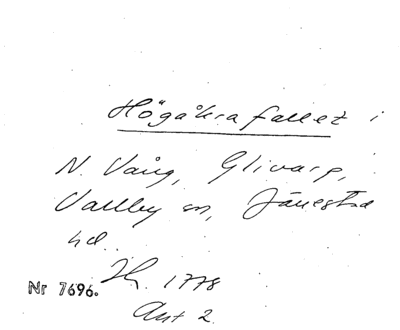 Högåkra fallet i
N. Vång, Glivarp,
Vallby sn, Järrestad
hd.
Nr 7696. Th. 1778
Akt 2